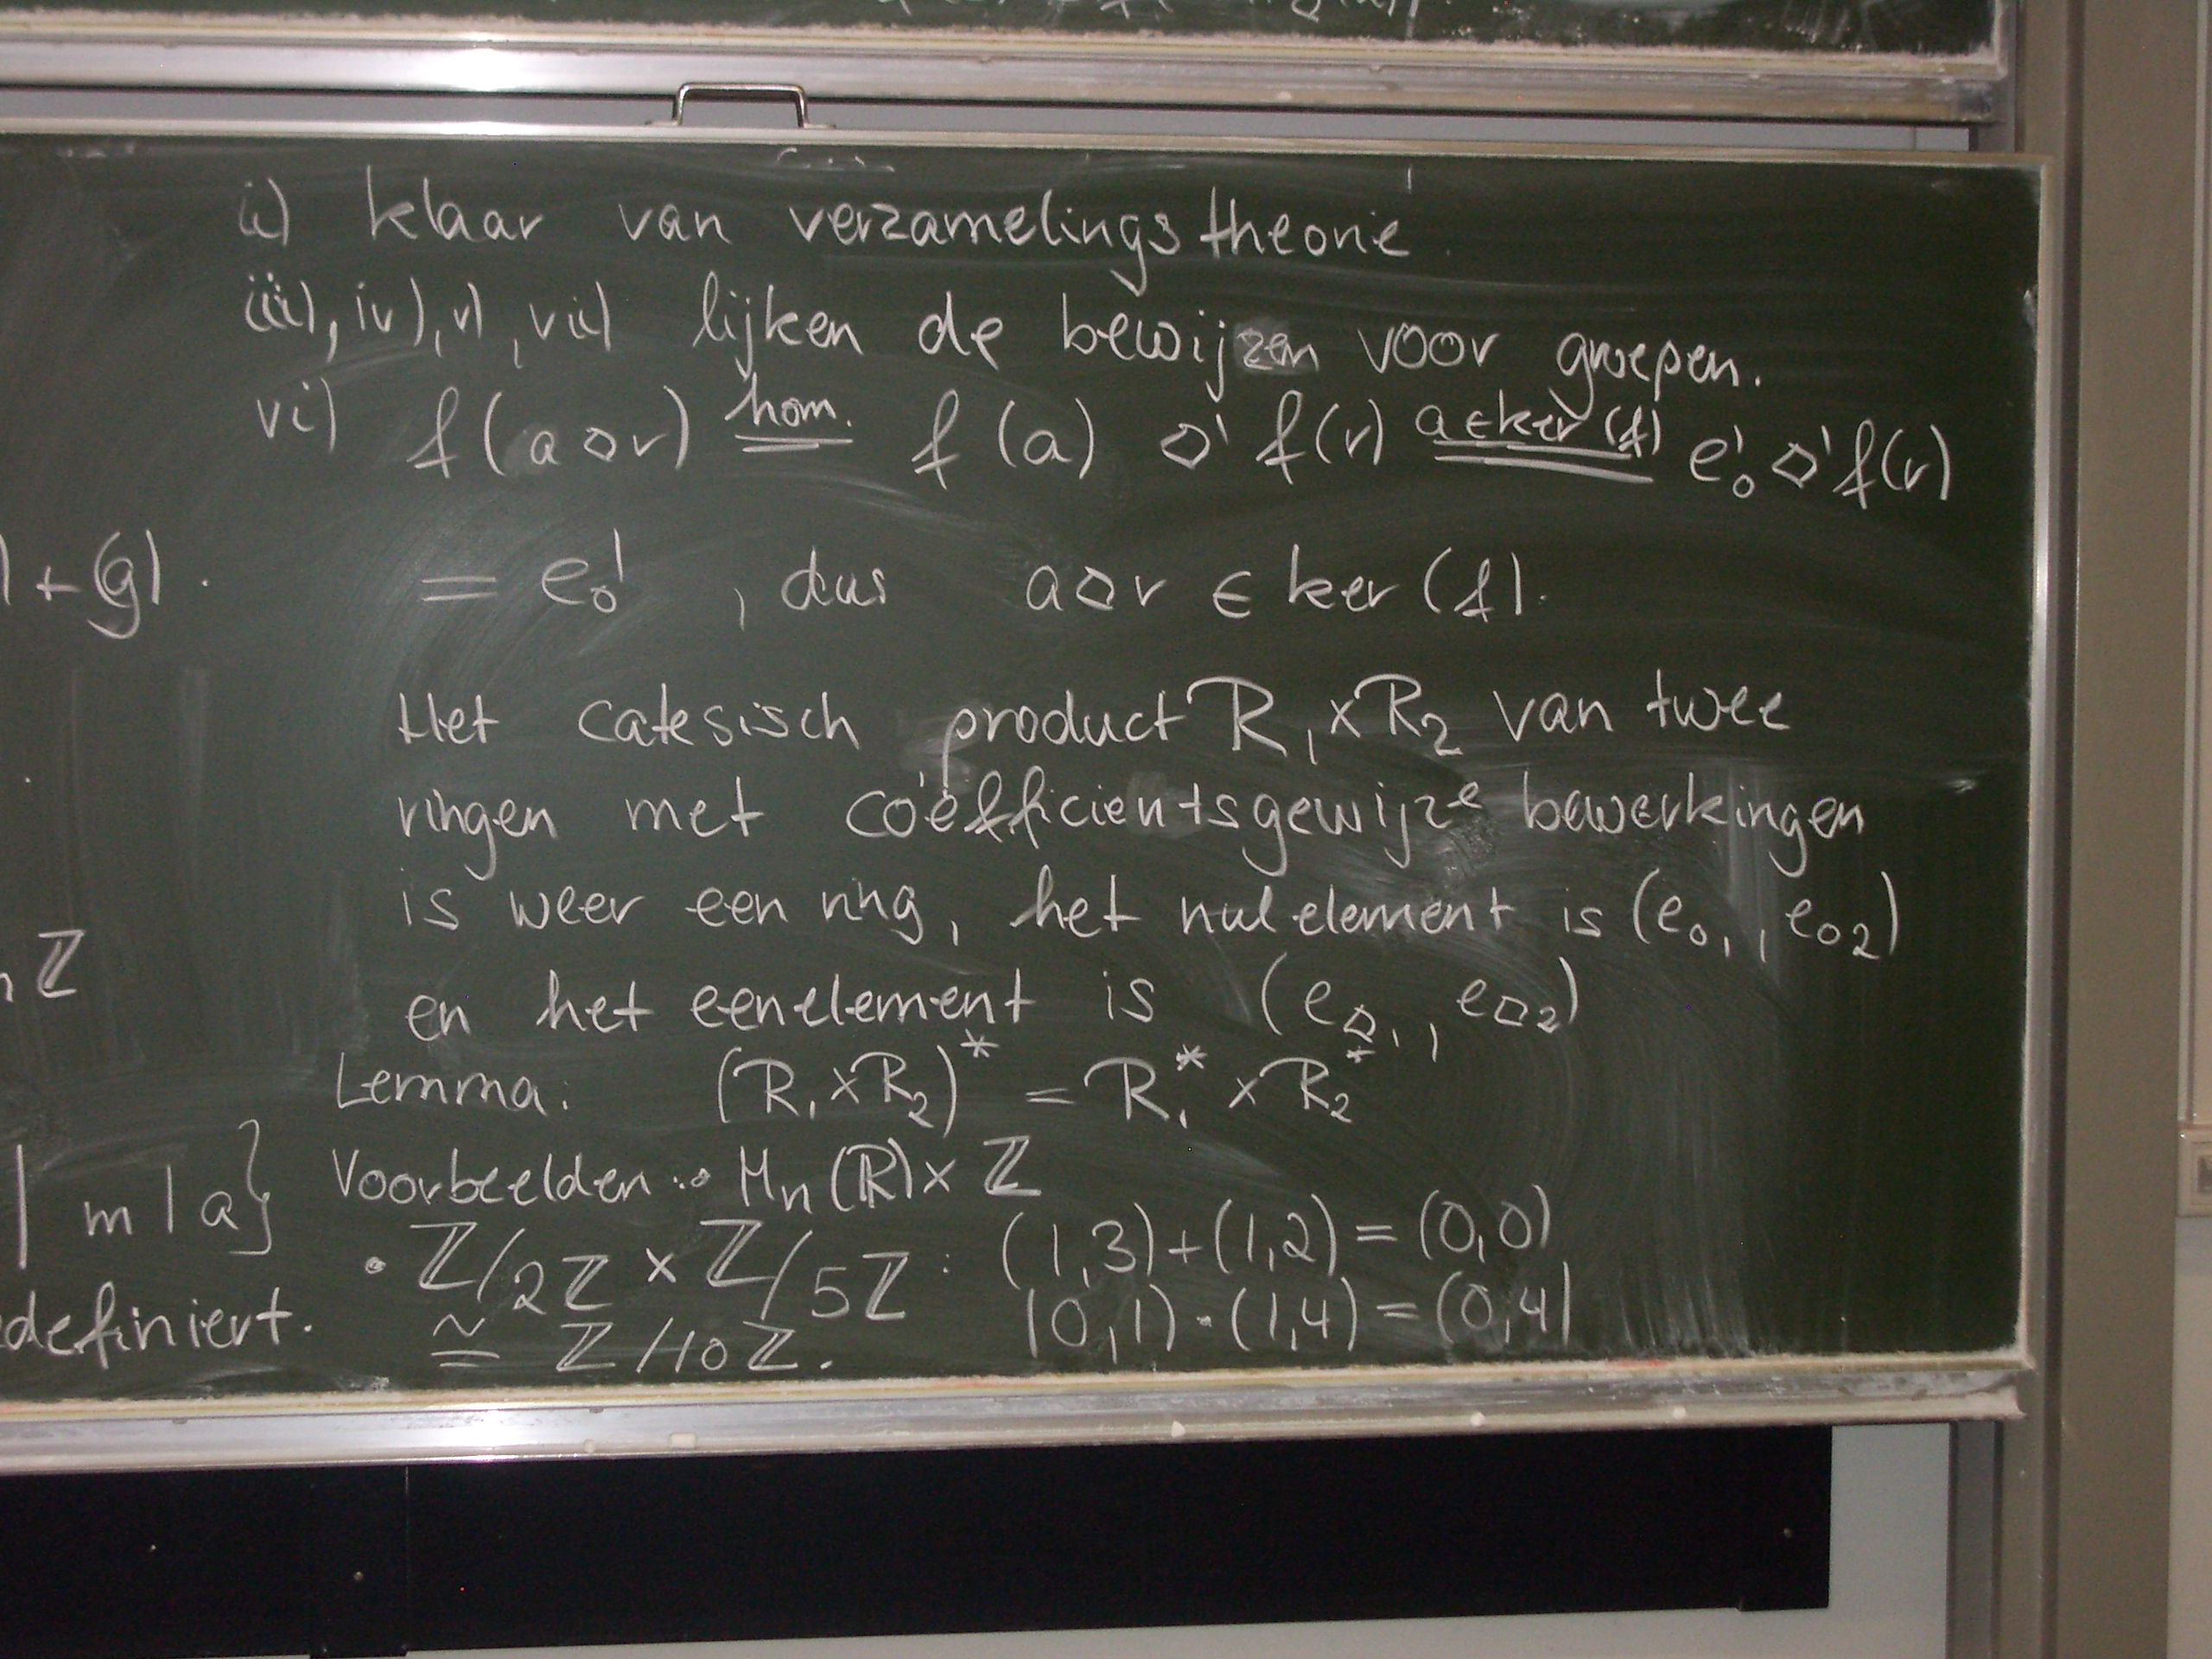 ii) klaar van verzamelingstheorie.
iii), iv), v), vii) lijken de bewijzen voor groepen.
vi) f(a◇r) =hom.= f(a) ◇' f(r) =a∈ker(f)= e'₀ ◇' f(r)
) + (g).
= e₀' , dus a◇r ∈ ker(f).
Het catesisch product R₁×R₂ van twee
ringen met coëfficientsgewijze bewerkingen
is weer een ring, het nulelement is (e₀₁, e₀₂)
Z
en het eenelement is (e◇₁, e◇₂)
Lemma: (R₁×R₂)* = R₁* × R₂*
| m | a}
Voorbeelden: • Mₙ(ℝ)× ℤ
• ℤ/2ℤ × ℤ/5ℤ : (1,3)+(1,2) = (0,0)
definiert.
≅ ℤ/10ℤ. (0,1)·(1,4) = (0,4)